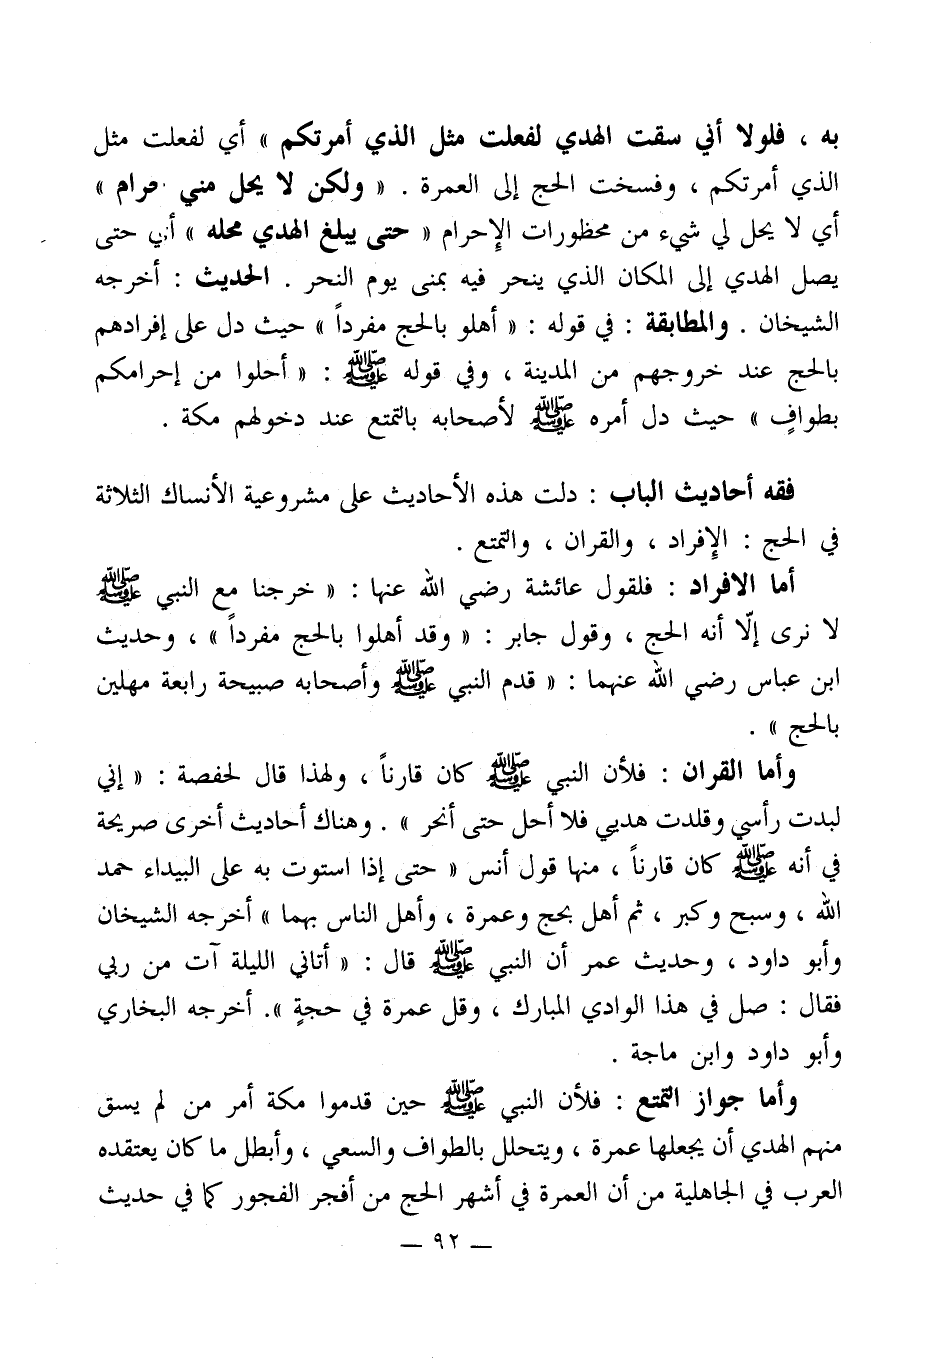 به ، فلولا أني سقت الهدي لفعلت مثل الذي أمرتكم » أي لفعلت مثل
الذي أمرتكم ، وفسخت الحج إلى العمرة . « ولكن لا يحل مني حرام »
أي لا يحل لي شيء من محظورات الإحرام « حتى يبلغ الهدي محله » أي حتى
يصل الهدي إلى المكان الذي ينحر فيه بمنى يوم النحر . الحديث : أخرجه
الشيخان . والمطابقة : في قوله : « أهلو بالحج مفرداً » حيث دل على إفرادهم
بالحج عند خروجهم من المدينة ، وفي قوله ﷺ : « أحلوا من إحرامكم
بطوافٍ » حيث دل أمره ﷺ لأصحابه بالتمتع عند دخولهم مكة .
فقه أحاديث الباب : دلت هذه الأحاديث على مشروعية الأنساك الثلاثة
في الحج : الإفراد ، والقران ، والتمتع .
أما الافراد : فلقول عائشة رضي الله عنها : « خرجنا مع النبي ﷺ
لا نرى إلّا أنه الحج ، وقول جابر : « وقد أهلوا بالحج مفرداً » ، وحديث
ابن عباس رضي الله عنهما : « قدم النبي ﷺ وأصحابه صبيحة رابعة مهلين
بالحج » .
وأما القران : فلأن النبي ﷺ كان قارناً ، ولهذا قال لحفصة : « إني
لبدت رأسي وقلدت هديي فلا أحل حتى أنحر » . وهناك أحاديث أخرى صريحة
في أنه ﷺ كان قارناً ، منها قول أنس « حتى إذا استوت به على البيداء حمد
الله ، وسبح وكبر ، ثم أهل بحج وعمرة ، وأهل الناس بهما » أخرجه الشيخان
وأبو داود ، وحديث عمر أن النبي ﷺ قال : « أتاني الليلة آت من ربي
فقال : صل في هذا الوادي المبارك ، وقل عمرة في حجةٍ ». أخرجه البخاري
وأبو داود وابن ماجة .
وأما جواز التمتع : فلأن النبي ﷺ حين قدموا مكة أمر من لم يسق
منهم الهدي أن يجعلها عمرة ، ويتحلل بالطواف والسعي ، وأبطل ما كان يعتقده
العرب في الجاهلية من أن العمرة في أشهر الحج من أفجر الفجور كما في حديث
— ٩٢ —